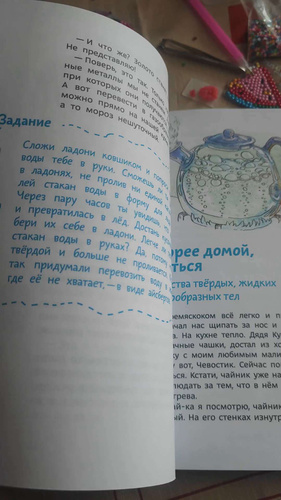 — И что же? Золото
Не представляю!
— Поверь, это так.
ные металлы мы не
при которых они
А вот перевести в
можно прямо на нашей
а то мороз нешуточный.
Задание
Сложи ладони ковшиком и
воды тебе в руки. Сможешь ли
в ладонях, не пролив ни единой
лей стакан воды в форму для
Через пару часов ты увидишь,
и превратилась в лёд. Достань
бери их себе в ладони. Легче
стакан воды в руках? Да, потому
твёрдой и больше не проливается.
так придумали перевозить воду
где её не хватает, — в виде айсберга
рее домой,
ться
ства твёрдых, жидких
образных тел
ремяскоком всё легко и
чал нас щипать за нос и
. На кухне тепло. Дядя
ные чашки, достал из
ку с моим любимым
вот, Чевостик. Сейчас
ься. Кстати, чайник уже
людать за тем, что в нём
грева.
ай-ка я посмотрю, чайник
ый. На его стенках изнутри